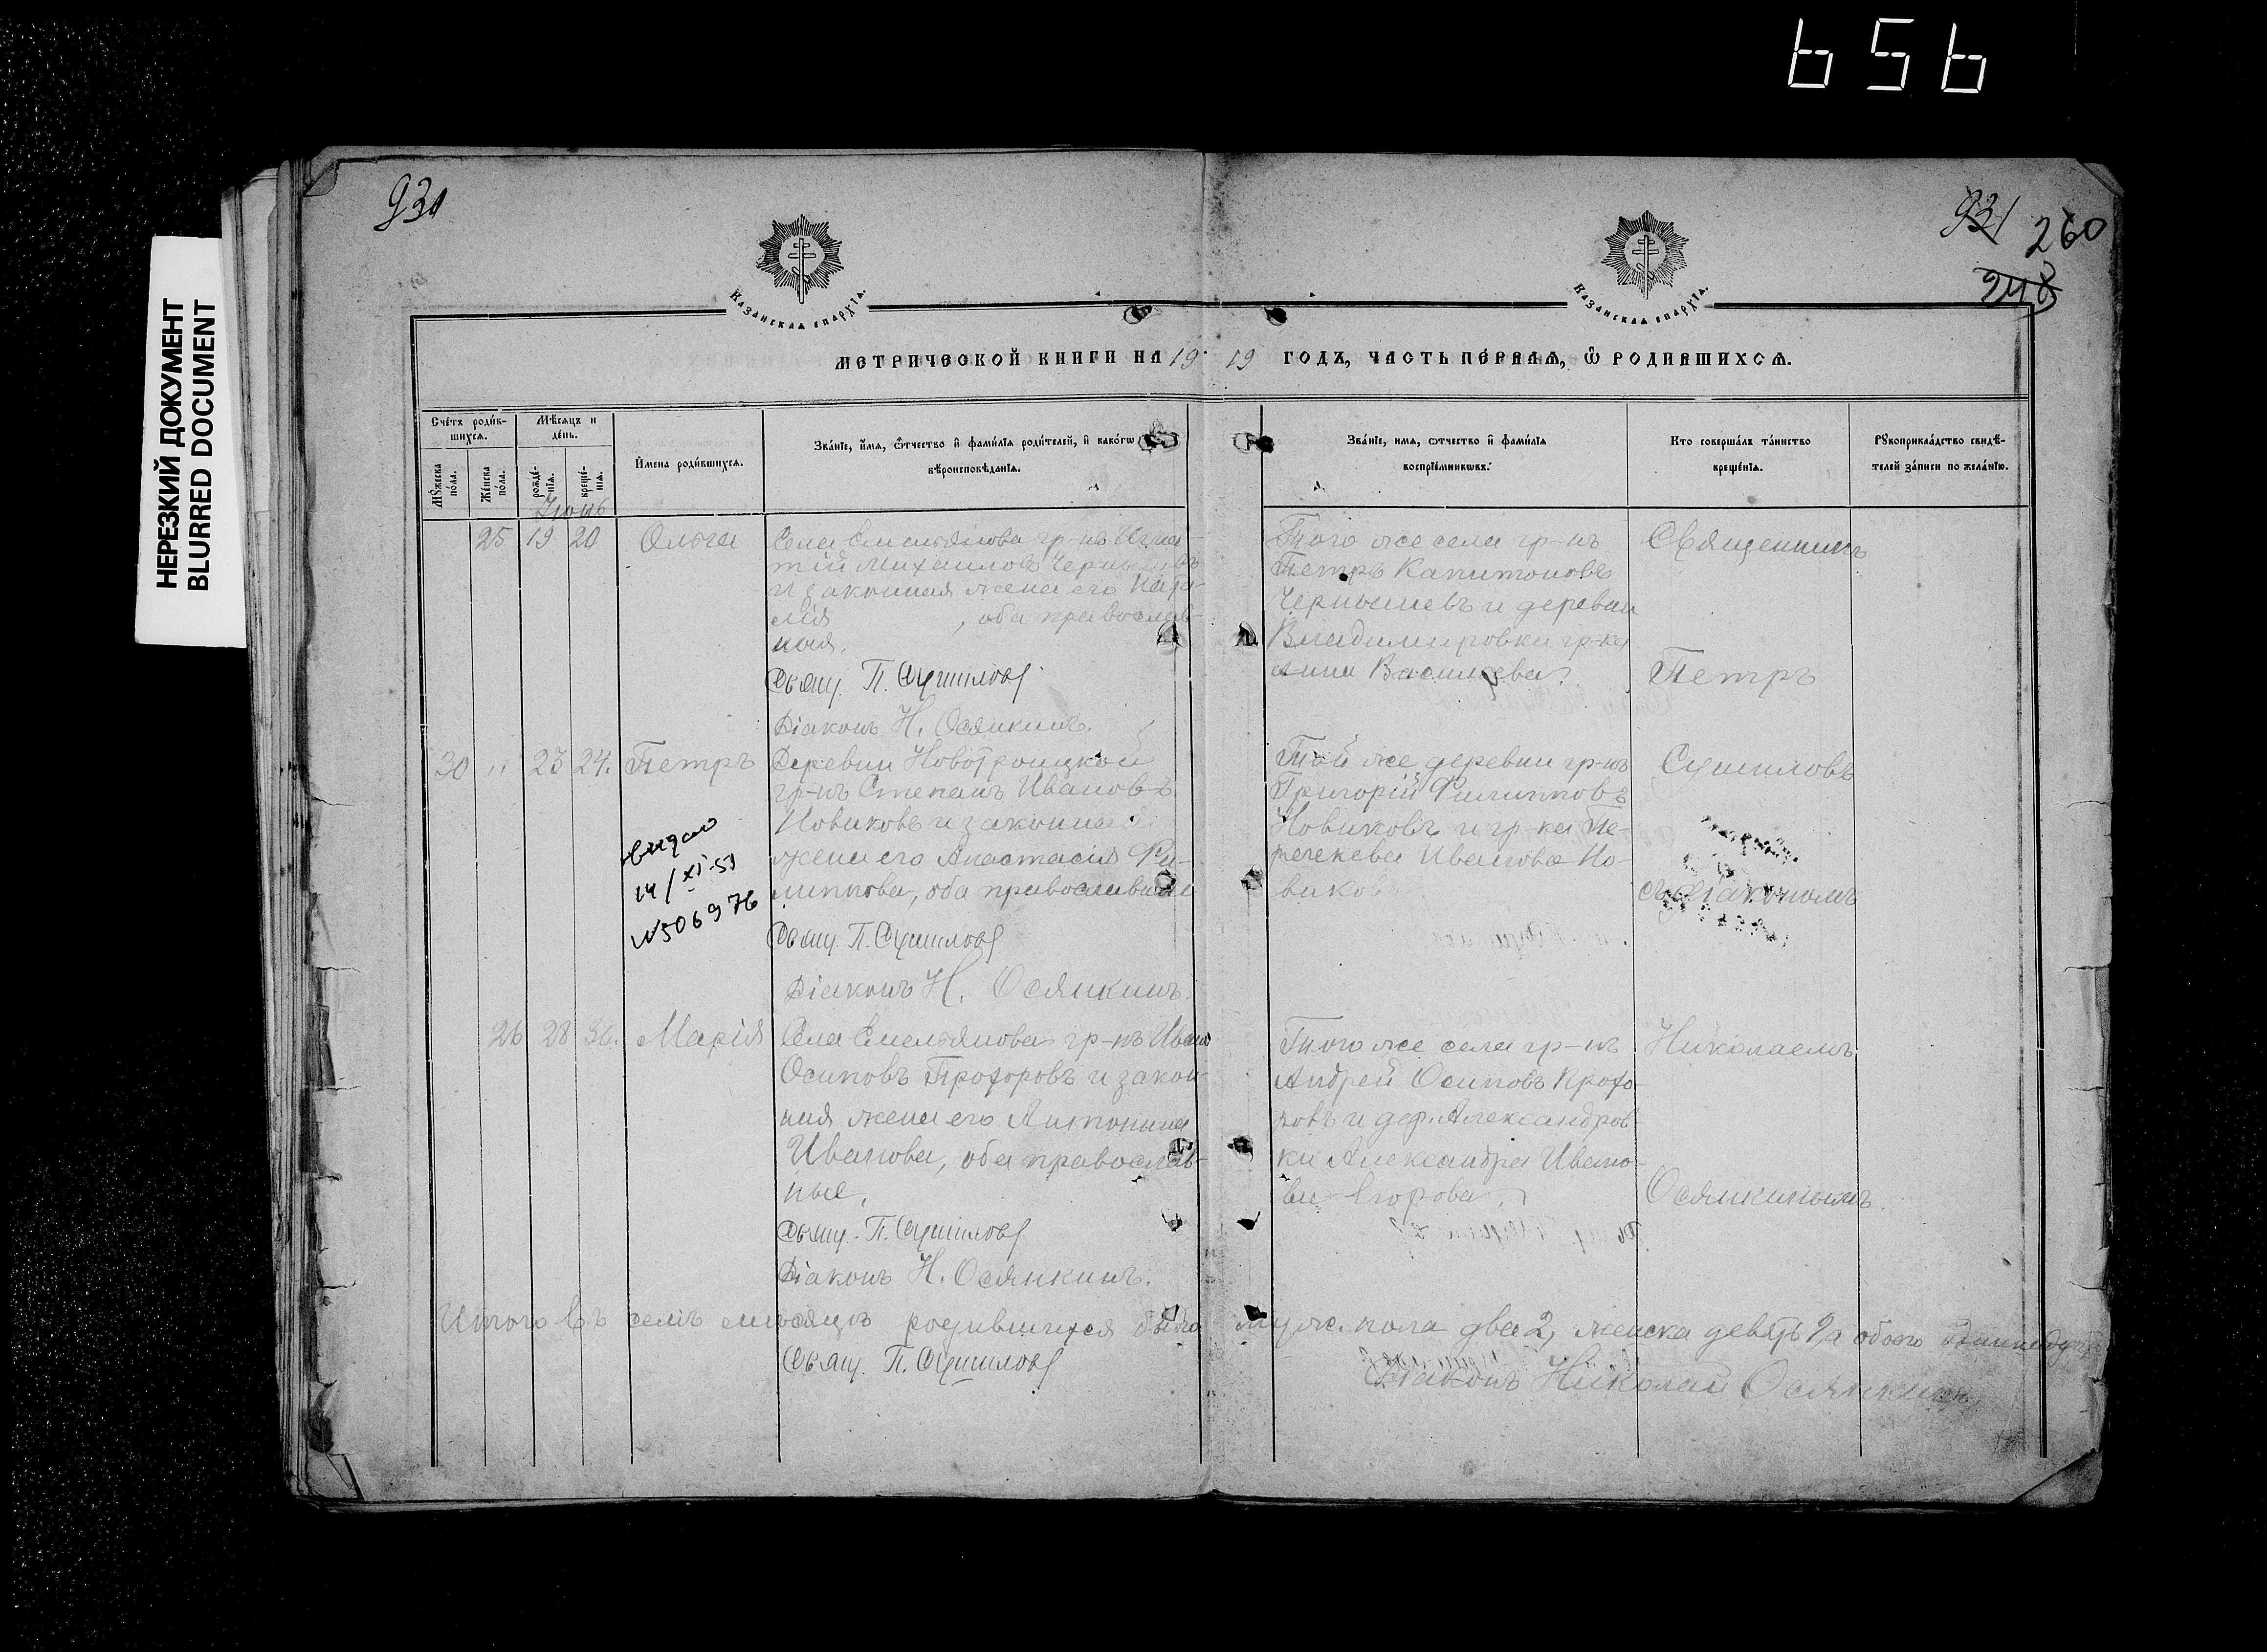 656
НЕРЕЗКИЙ ДОКУМЕНТ
BLURRED DOCUMENT
931
931 260
248
Казанская епархїа.
Казанская епархїа.
МЕТРИЧЕСКОЙ КНИГИ НА 19 19 ГОДЪ, ЧАСТЬ ПЕ́РВАЯ, Ѽ РОДИВШИХСЯ.
Сче́тъ роди́в-
шихся.
Мѣ́сяцъ и
де́нь.
Мꙋ́жеска
по́ла.
Же́нска
по́ла.
рожде́-
нїя.
креще́-
нїя.
И҆мена роди́вшихся.
Зва́нїе, и҆́мя, ѻ҆́тчество и҆ фами́лїя роди́телей, и҆ како́гѡ
вѣроисповѣ́данїя.
Зва́нїе, имя, ѻтчество и҆ фами́лїя
воспрїе́мникѡвъ.
Кто соверша́лъ та́инство
креще́нїя.
Рꙋкоприкла́дство свидѣ́-
телей за́писи по жела́нїю.
Іюнь
25 19 20 Ольга
Села Емельянова гр-нъ Игна-
тій Михаиловъ
и законная жена его Ната-
лія , оба православ-
ныя.
Свящ. П. Сушиловъ
Діаконъ Н. Осянкинъ.
Того же села гр-нъ
Петръ Капитоновъ
Чернышевъ и деревни
Владимировки гр-ка
Анна Васильева.
Священникъ
Петръ
30 " 23 24. Петръ
Деревни Новотроицкой
гр-нъ Степанъ Ивановъ
Новиковъ и законная
жена его Анастасія Фи-
липпова, оба православные
Свящ. П. Сушиловъ
Діаконъ Н. Осянкинъ.
видано
14/XI-51
№506976
Той же деревни гр-нъ
Григорій Филипповъ
Новиковъ и гр-ка
Иванова Но-
вико
Сушиловъ
съ діакономъ
26 28 30. Марія
Села Емельянова гр-нъ Иванъ
Осиповъ Прохоровъ и закон-
ная жена его Антонина
Иванова, оба православ-
ные.
Свящ. П. Сушиловъ
Діаконъ Н. Осянкинъ.
Того же села гр-нъ
Андрей Осиповъ Прохо-
ровъ и дер. Александров-
ки Александра Ивано-
ва Егорова.
Николаемъ
Осянкинымъ.
Итого въ семъ мѣсяцѣ родившихся было муж. пола два 2, женска девять 9, а обоего
Свящ. П. Сушиловъ
Діаконъ Николай Осянкинъ